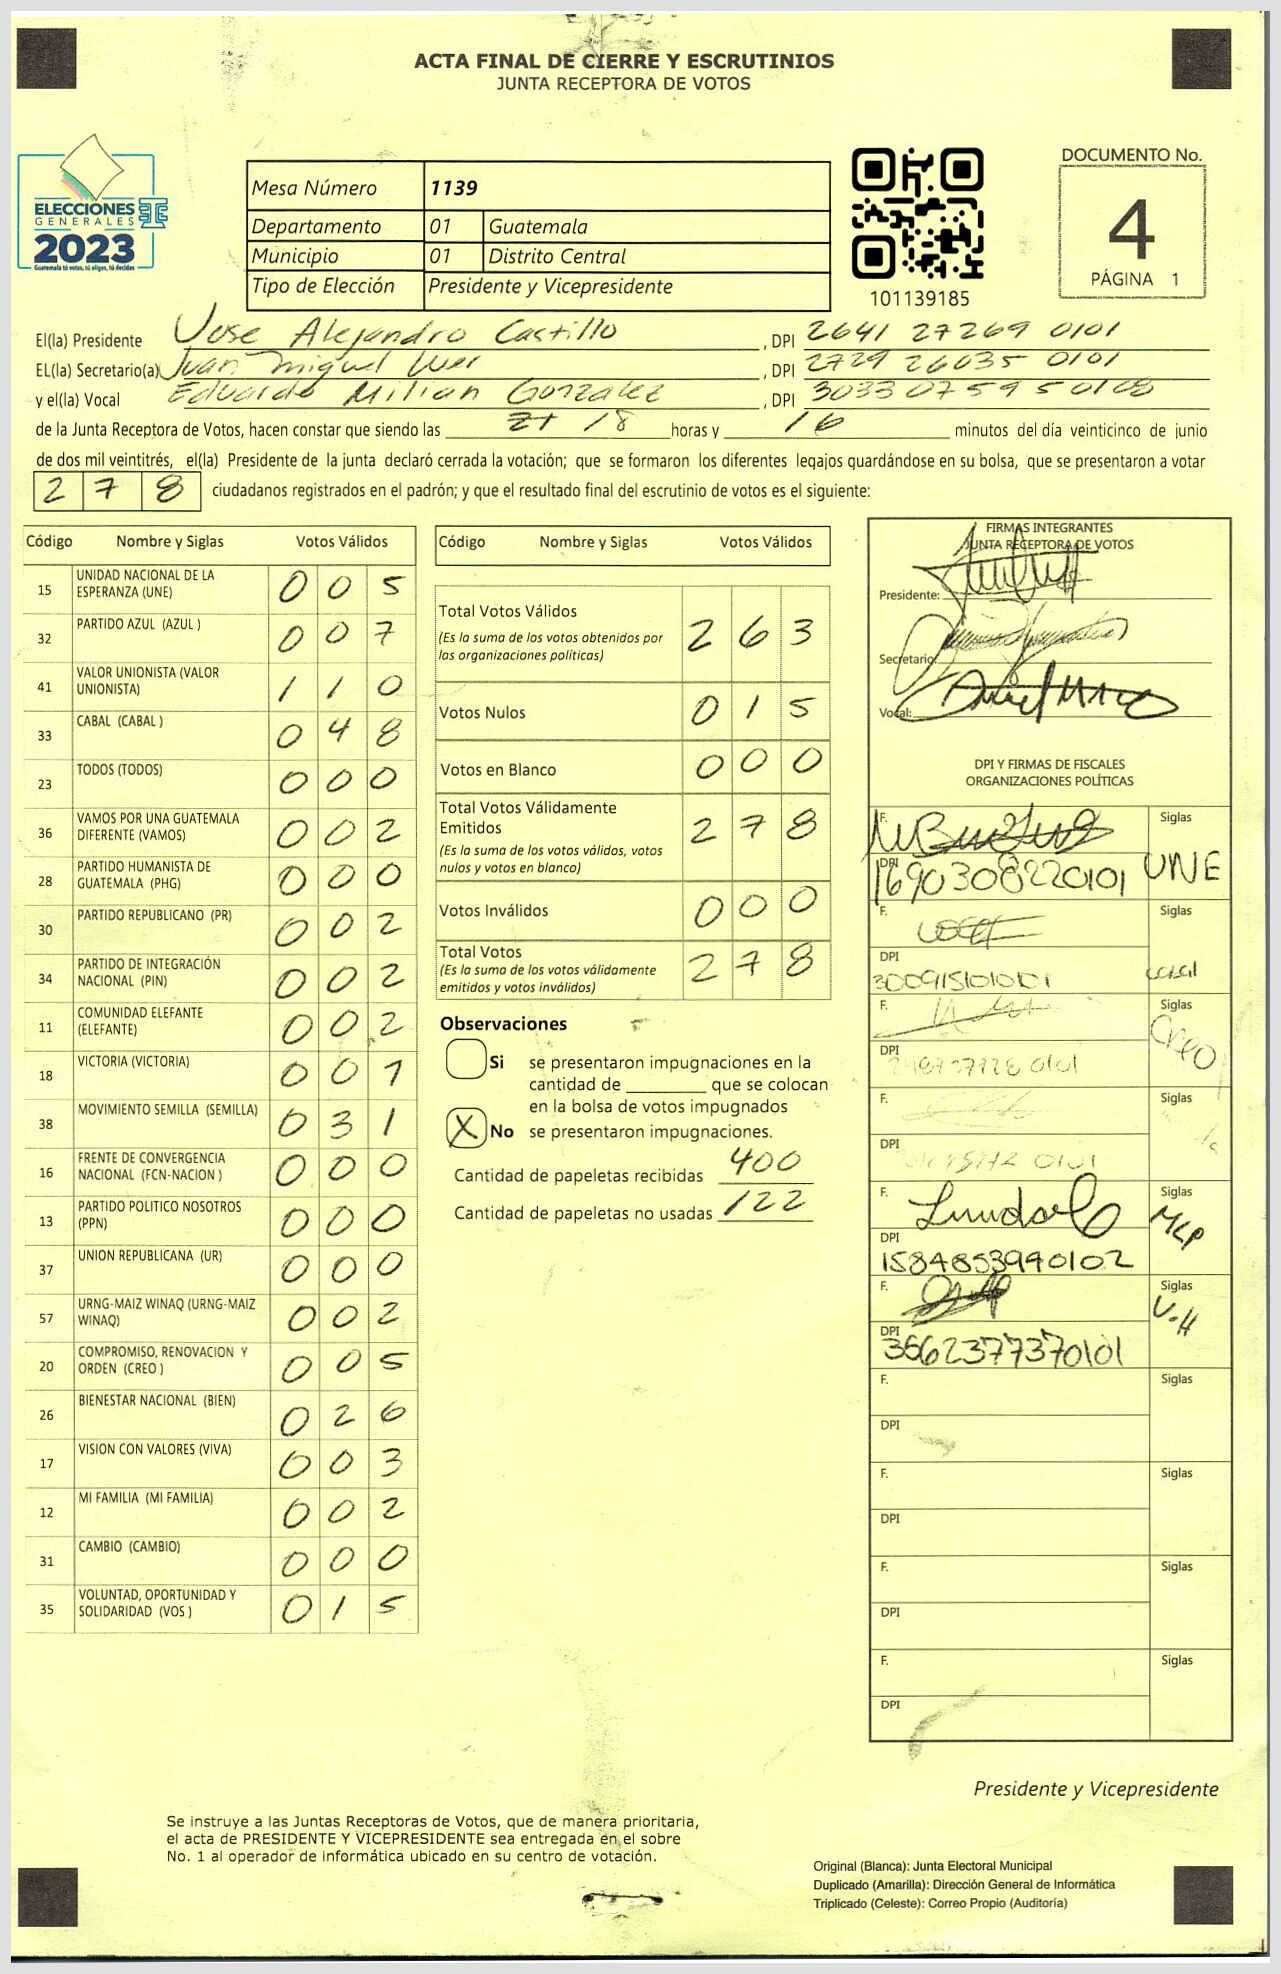 ACTA FINAL DE CIERRE Y ESCRUTINIOS
JUNTA RECEPTORA DE VOTOS
ELECCIONES
GENERALES
2023
Guatemala tú votas, tú eliges, tú decides
Mesa Número 1139
Departamento 01 Guatemala
Municipio 01 Distrito Central
Tipo de Elección Presidente y Vicepresidente
101139185
DOCUMENTO No.
4
PÁGINA 1
El(la) Presidente Jose Alejandro Castillo , DPI 2641 27269 0101
EL(la) Secretario(a) Juan Miguel , DPI 2729 26035 0101
y el(la) Vocal Eduardo Milian Gonzalez , DPI 3033 07595 0108
de la Junta Receptora de Votos, hacen constar que siendo las 18 horas y 16 minutos del día veinticinco de junio
de dos mil veintitrés, el(la) Presidente de la junta declaró cerrada la votación; que se formaron los diferentes legajos guardándose en su bolsa, que se presentaron a votar
278 ciudadanos registrados en el padrón; y que el resultado final del escrutinio de votos es el siguiente:
Código Nombre y Siglas Votos Válidos
15 UNIDAD NACIONAL DE LA ESPERANZA (UNE) 005
32 PARTIDO AZUL (AZUL ) 007
41 VALOR UNIONISTA (VALOR UNIONISTA) 110
33 CABAL (CABAL ) 048
23 TODOS (TODOS) 000
36 VAMOS POR UNA GUATEMALA DIFERENTE (VAMOS) 002
28 PARTIDO HUMANISTA DE GUATEMALA (PHG) 000
30 PARTIDO REPUBLICANO (PR) 002
34 PARTIDO DE INTEGRACIÓN NACIONAL (PIN) 002
11 COMUNIDAD ELEFANTE (ELEFANTE) 002
18 VICTORIA (VICTORIA) 001
38 MOVIMIENTO SEMILLA (SEMILLA) 031
16 FRENTE DE CONVERGENCIA NACIONAL (FCN-NACION ) 000
13 PARTIDO POLITICO NOSOTROS (PPN) 000
37 UNION REPUBLICANA (UR) 000
57 URNG-MAIZ WINAQ (URNG-MAIZ WINAQ) 002
20 COMPROMISO, RENOVACION Y ORDEN (CREO ) 005
26 BIENESTAR NACIONAL (BIEN) 026
17 VISION CON VALORES (VIVA) 003
12 MI FAMILIA (MI FAMILIA) 002
31 CAMBIO (CAMBIO) 000
35 VOLUNTAD, OPORTUNIDAD Y SOLIDARIDAD (VOS ) 015
Código Nombre y Siglas Votos Válidos
Total Votos Válidos 263
(Es la suma de los votos obtenidos por
las organizaciones políticas)
Votos Nulos 015
Votos en Blanco 000
Total Votos Válidamente
Emitidos 278
(Es la suma de los votos válidos, votos
nulos y votos en blanco)
Votos Inválidos 000
Total Votos 278
(Es la suma de los votos válidamente
emitidos y votos inválidos)
Observaciones
Si se presentaron impugnaciones en la
cantidad de ________ que se colocan
en la bolsa de votos impugnados
X No se presentaron impugnaciones.
Cantidad de papeletas recibidas 400
Cantidad de papeletas no usadas 122
FIRMAS INTEGRANTES
JUNTA RECEPTORA DE VOTOS
Presidente:
Secretario:
Vocal:
DPI Y FIRMAS DE FISCALES
ORGANIZACIONES POLÍTICAS
F. Siglas
DPI 1690308220101 UNE
F. Siglas
DPI
3009151010101 cabal
F. Siglas
DPI Creo
F. Siglas
DPI
F. Siglas
DPI MLP
1584853940102
F. Siglas
DPI
3562377370101
F. Siglas
DPI
F. Siglas
DPI
F. Siglas
DPI
F. Siglas
DPI
Presidente y Vicepresidente
Se instruye a las Juntas Receptoras de Votos, que de manera prioritaria,
el acta de PRESIDENTE Y VICEPRESIDENTE sea entregada en el sobre
No. 1 al operador de informática ubicado en su centro de votación.
Original (Blanca): Junta Electoral Municipal
Duplicado (Amarilla): Dirección General de Informática
Triplicado (Celeste): Correo Propio (Auditoría)